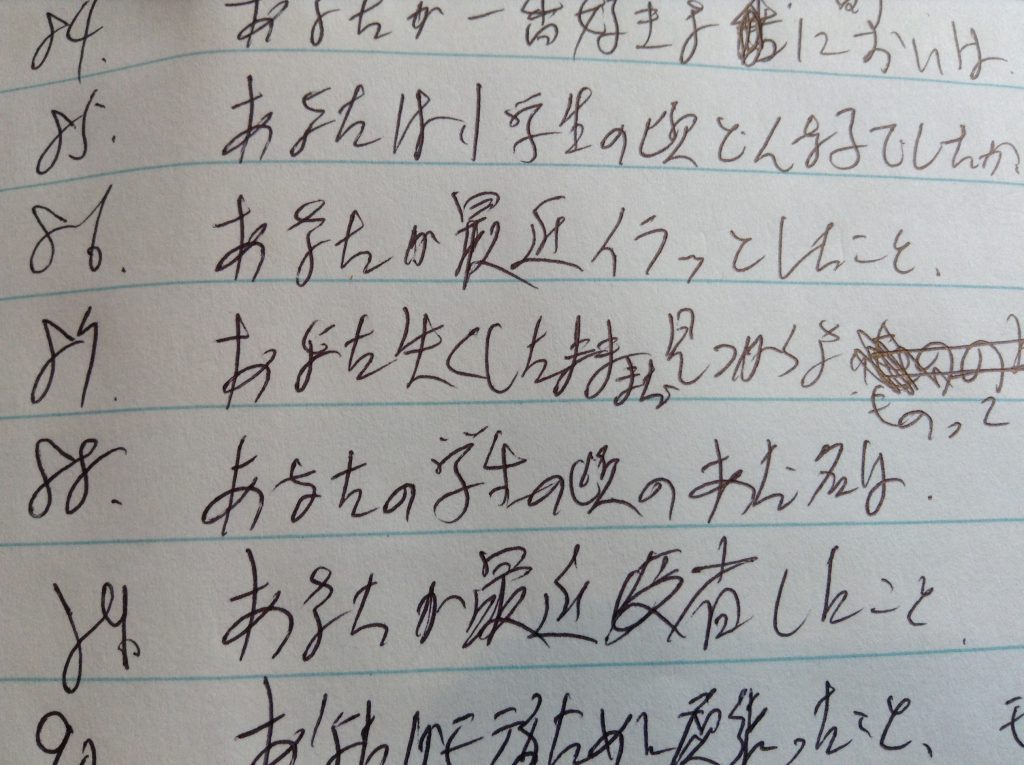 84. あなたが一番好きなにおいは
85. あなたは小学生の頃どんな子でしたか
86. あなたが最近イラっとしたこと、
87. あなた失くしたまままだ見つからな
ものって
88. あなたの学生の頃のあだ名は.
89. あなたが最近反省したこと.
90 あなたはモテるために頑張ったこと、